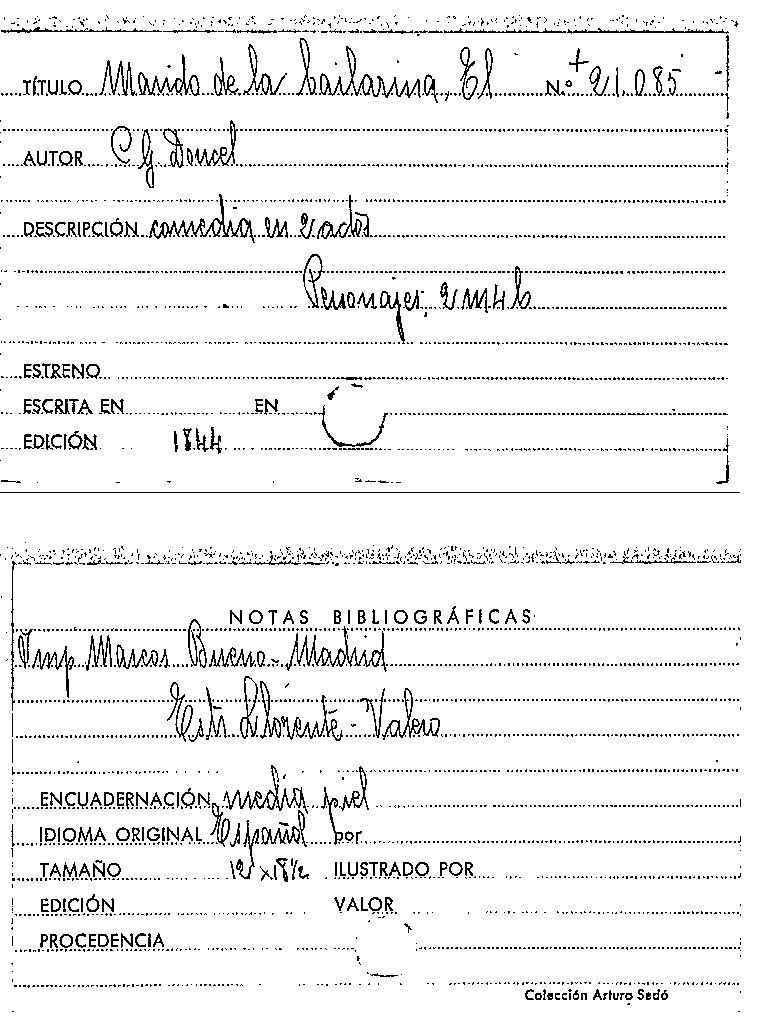 TÍTULO Marido de la bailarina, El N.º + 21.085
AUTOR C G Doncel
DESCRIPCIÓN comedia en 2 actos
Personajes, 2 m 4 h
ESTRENO
ESCRITA EN EN
EDICIÓN 1844
NOTAS BIBLIOGRÁFICAS
Imp Marcos Bueno - Madrid
Estr Llorente - Valero
ENCUADERNACIÓN media piel
IDIOMA ORIGINAL Español por
TAMAÑO 12 x 18 ½ ILUSTRADO POR
EDICIÓN VALOR
PROCEDENCIA
Colección Arturo Sedó